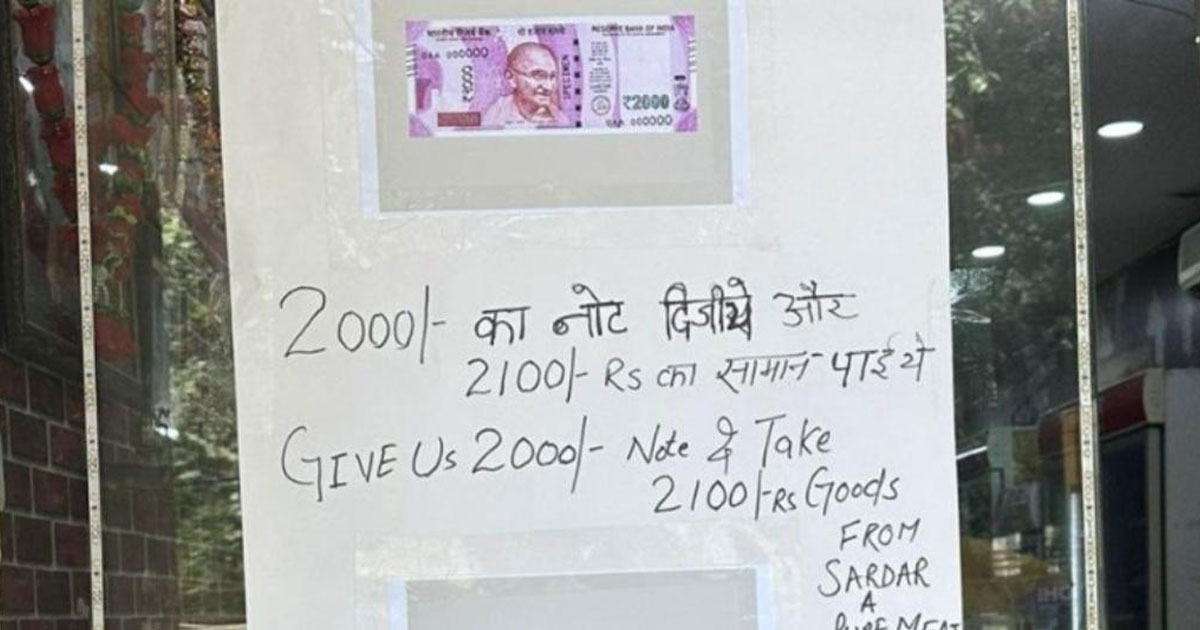 भारतीय रिज़र्व बैंक
दो हज़ार रुपये
RESERVE BANK OF INDIA
0AA 000000
₹2000
SPECIMEN
₹2000
0AA 000000
2000/- का नोट दिजीये और
2100/- Rs का सामान पाईये
GIVE Us 2000/- Note & Take
2100/-Rs Goods
FROM
SARDAR
A
PURE MEAT